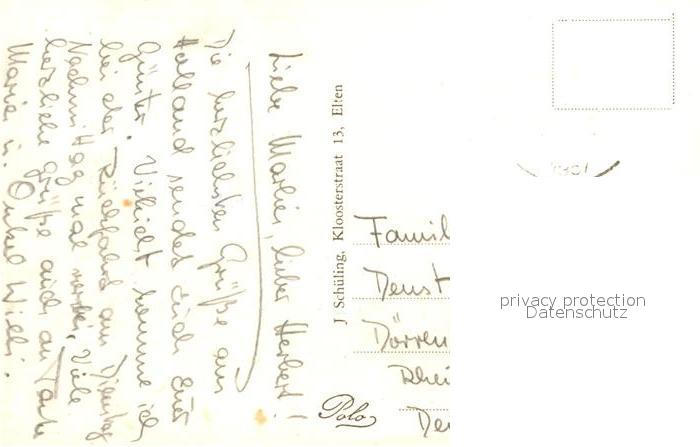 Liebe Marlies, lieber Herbert!
Die herzlichsten Grüße aus
Holland sendet Euch Euer
Günter. Vielleicht komme ich
bei der Rückfahrt am Dienstag
Nachmittag mal vorbei. Viele
herzliche Grüße auch an Tante
Maria u. Onkel Willi.
J Schüling, Kloosterstraat 13, Elten
Polo
Famil
Denst
Dörren
Rhei
De
privacy protection
Datenschutz